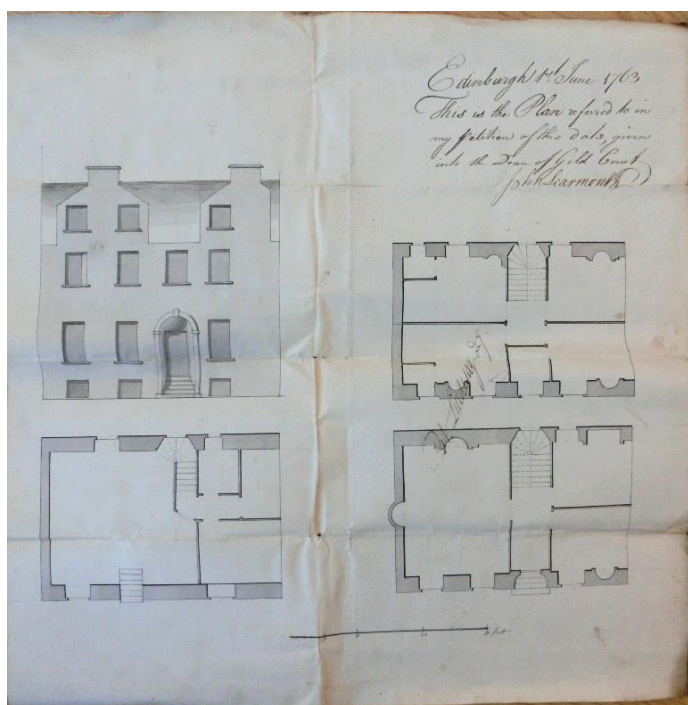 Edinburgh 1st June 1763
This is the Plan refered to in
my petition of this date, given
into the Dean of Gild Court
John Learmonth